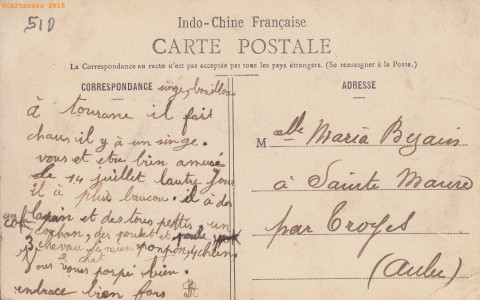 ©Cartacaro 2018
510
Indo-Chine Française
CARTE POSTALE
La Correspondance au recto n'est pas acceptée par tous les pays étrangers. (Se renseigner à la Poste.)
CORRESPONDANCE
singe, bouillons
à tourane il fait
chaus il y à un singe.
vous et etre bien amusé
le 14 juillet lautre jour
il à plus baucou. il à des
lapain et des tores pettis un
cochon, des poulet et poule
3 chevau le mien ponpon, 4 chiens
le chat
Vous vous porpé bien.
embrace bien fors
ADRESSE
Melle Maria Byain
à Sainte Maure
par Troyes
(Aube)